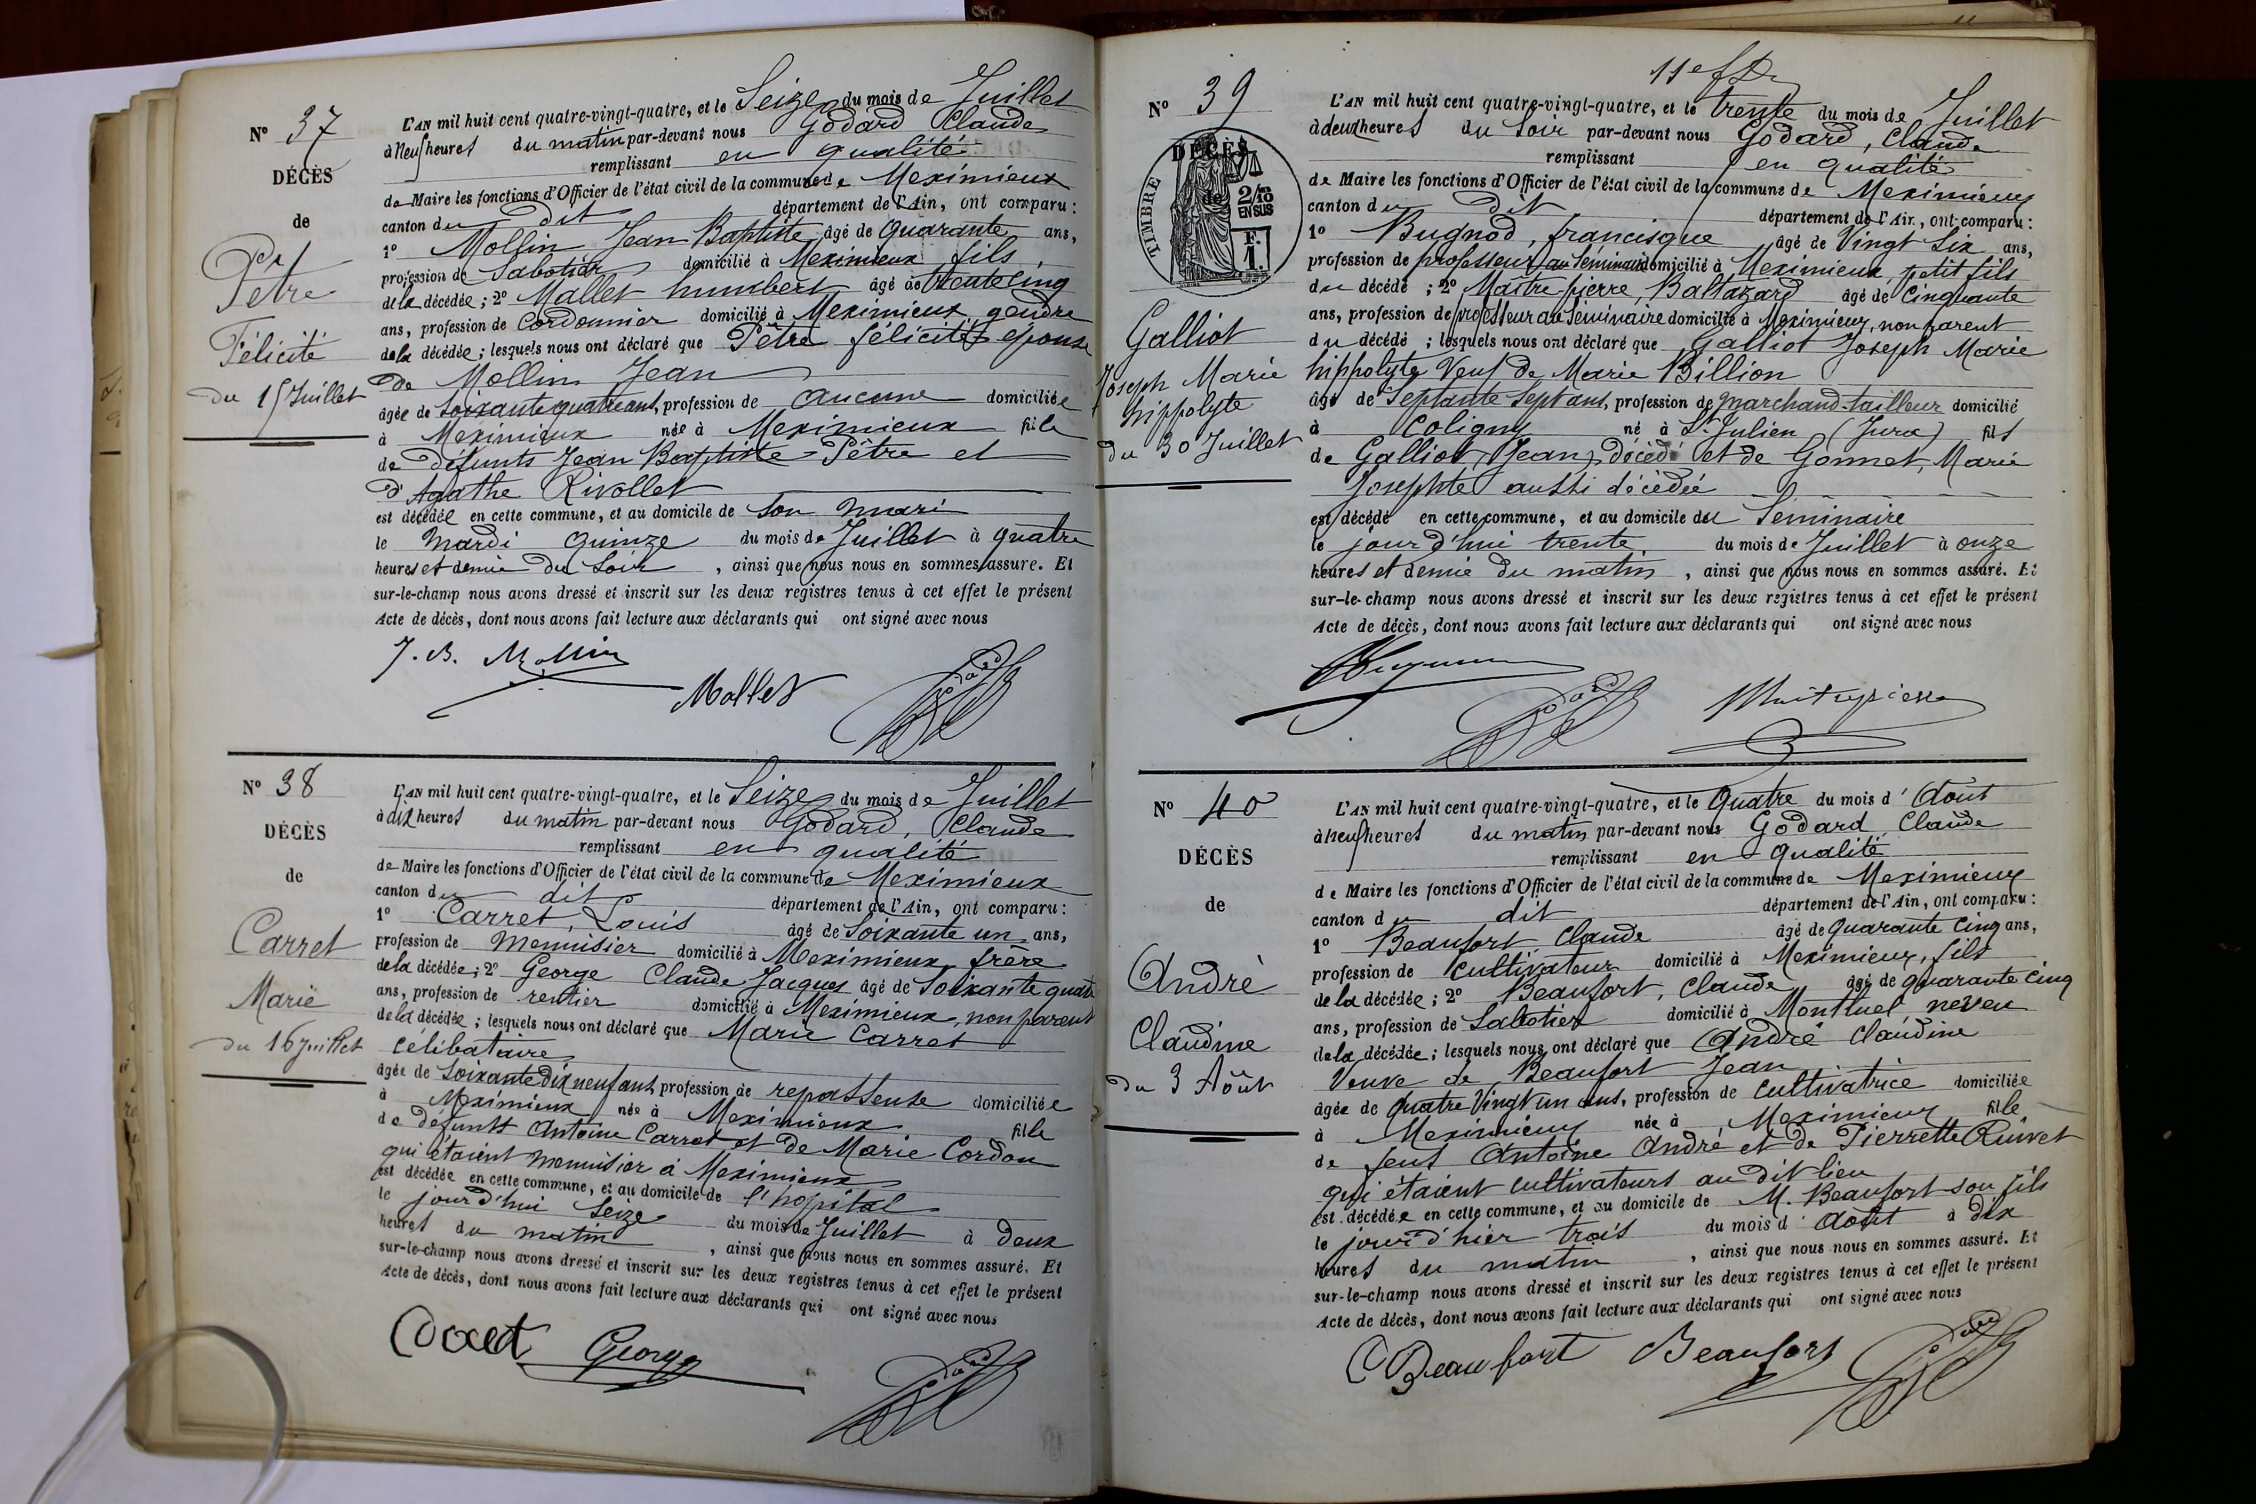 N° 37
DÉCÈS
de
Pêtre
Félicité
du 15 Juillet
L'AN mil huit cent quatre-vingt-quatre, et le Seize du mois de Juillet
à neuf heures du matin par-devant nous Godard Claude
remplissant en qualité
de Maire les fonctions d'Officier de l'état civil de la commune de Meximieux
canton du dit département de l'Ain, ont comparu :
1° Mollin Jean Baptiste âgé de quarante ans,
profession de Sabotier domicilié à Meximieux fils
de la décédée ; 2° Mallet humbert âgé de trente cinq
ans, profession de Cordonnier domicilié à Meximieux, gendre
de la décédée ; lesquels nous ont déclaré que Pêtre félicité épouse
de Mollin Jean
âgée de Soixante quatre ans, profession de aucune domiciliée
à Meximieux née à Meximieux fille
de défunts Jean Baptiste Pêtre et
d'Agathe Rivollet
est décédée en cette commune, et au domicile de son mari
le Mardi quinze du mois de Juillet à quatre
heures et demie du Soir , ainsi que nous nous en sommes assuré. Et
sur-le-champ nous avons dressé et inscrit sur les deux registres tenus à cet effet le présent
Acte de décès, dont nous avons fait lecture aux déclarants qui ont signé avec nous
J. B. Mollin
Mallet
Godard
N° 38
DÉCÈS
de
Carret
Marie
du 16 Juillet
L'AN mil huit cent quatre-vingt-quatre, et le Seize du mois de Juillet
à dix heures du matin par-devant nous Godard, Claude
remplissant en qualité
de Maire les fonctions d'Officier de l'état civil de la commune de Meximieux
canton du dit département de l'Ain, ont comparu :
1° Carret, Louis âgé de Soixante un ans,
profession de Menuisier domicilié à Meximieux, frère
de la décédée ; 2° George Claude Jacques âgé de Soixante quatre
ans, profession de rentier domicilié à Meximieux, non parent
de la décédée ; lesquels nous ont déclaré que Marie Carret
célibataire
âgée de Soixante dix neuf ans, profession de repasseuse domiciliée
à Meximieux née à Meximieux fille
de défunts Antoine Carret et de Marie Cordon
qui étaient menuisier à Meximieux
est décédée en cette commune, et au domicile de l'hopital
le jourd'hui Seize du mois de Juillet à deux
heures du matin , ainsi que nous nous en sommes assuré. Et
sur-le-champ nous avons dressé et inscrit sur les deux registres tenus à cet effet le présent
Acte de décès, dont nous avons fait lecture aux déclarants qui ont signé avec nous
Carret George
Godard
11e
N° 39
DÉCÈS
de
TIMBRE
2/10
EN SUS
F.
1.
Galliot
Joseph Marie
hippolyte
du 30 Juillet
L'AN mil huit cent quatre-vingt-quatre, et le trente du mois de Juillet
à deux heures du Soir par-devant nous Godard, Claude
remplissant en qualité
de Maire les fonctions d'Officier de l'état civil de la commune de Meximieux
canton du dit département de l'Ain, ont comparu :
1° Bugnod, francisque âgé de Vingt Six ans,
profession de professeur au Séminaire domicilié à Meximieux, petit fils
du décédé ; 2° Maître-pierre, Baltazard âgé de Cinquante
ans, profession de professeur au Séminaire domicilié à Meximieux, non parent
du décédé ; lesquels nous ont déclaré que Galliot Joseph Marie
hippolyte Veuf de Marie Billion
âgé de Septante Sept ans, profession de Marchand-tailleur domicilié
à Coligny né à St Julien (Jura) fils
de Galliot, Jean, décédé et de Gonnet, Marie
Josephte aussi décédée
est décédé en cette commune, et au domicile du Séminaire
le jourd'hui trente du mois de Juillet à onze
heures et demie du matin , ainsi que nous nous en sommes assuré. Et
sur-le-champ nous avons dressé et inscrit sur les deux registres tenus à cet effet le présent
Acte de décès, dont nous avons fait lecture aux déclarants qui ont signé avec nous
Godard
Maitrepierre
N° 40
DÉCÈS
de
André
Claudine
du 3 Août
L'AN mil huit cent quatre-vingt-quatre, et le quatre du mois d'Août
à neuf heures du matin par-devant nous Godard Claude
remplissant en qualité
de Maire les fonctions d'Officier de l'état civil de la commune de Meximieux
canton du dit département de l'Ain, ont comparu :
1° Beaufort Claude âgé de quarante cinq ans,
profession de Cultivateur domicilié à Meximieux, fils
de la décédée ; 2° Beaufort, Claude âgé de quarante cinq
ans, profession de Sabotier domicilié à Montluel neveu
de la décédée ; lesquels nous ont déclaré que André Claudine
Veuve de Beaufort Jean
âgée de quatre Vingt un ans, profession de cultivatrice domiciliée
à Meximieux née à Meximieux fille
de feus Antoine André et de Pierrette Ruivet
qui étaient cultivateurs au dit lieu
est décédée en cette commune, et au domicile de M. Beaufort son fils
le jour d'hier trois du mois d'Août à dix
heures du matin , ainsi que nous nous en sommes assuré. Et
sur-le-champ nous avons dressé et inscrit sur les deux registres tenus à cet effet le présent
Acte de décès, dont nous avons fait lecture aux déclarants qui ont signé avec nous
C Beaufort Beaufort
Godard